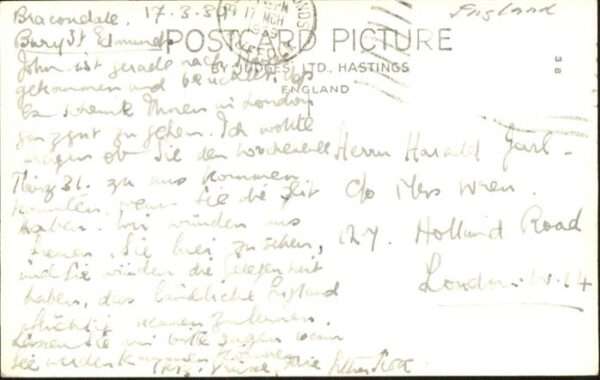 Bracondale. 17.3.39
Bury St Edmunds
John ist gerade nach
gekommen und berichtet
es scheint Ihnen in London
ganz gut zu gehen. Ich wollte
fragen ob Sie den Wochenende
März 31. zu uns kommen
könnten, wenn Sie die Zeit
haben. Wir würden uns
freuen, Sie hier zu sehen,
und Sie würden die Gelegenheit
haben, das ländliche England
flüchtig kennen zu lernen.
Lassen Sie mich bitte sagen wenn
Sie werden kommen können.
England
POSTCARD PICTURE
BY JUDGES LTD., HASTINGS
ENGLAND
Herrn Harald
c/o Mrs Wren.
127. Holland Road
London. W.14